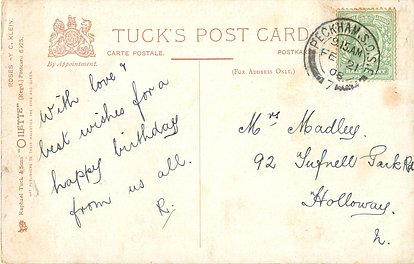 TUCK'S POST CARD
CARTE POSTALE.
POSTKA
By Appointment.
(FOR ADDRESS ONLY.)
PECKHAM.S.O.S.E
9.15AM
FE 21
06
7
With love &
best wishes for a
happy birthday
from us all.
R.
Mrs Madley.
92 Tufnell Park Rd
Holloway.
N.
ROSES BY C. KLEIN.
Raphael Tuck & Sons' "OILETTE" [Regd.] Postcard 6925.